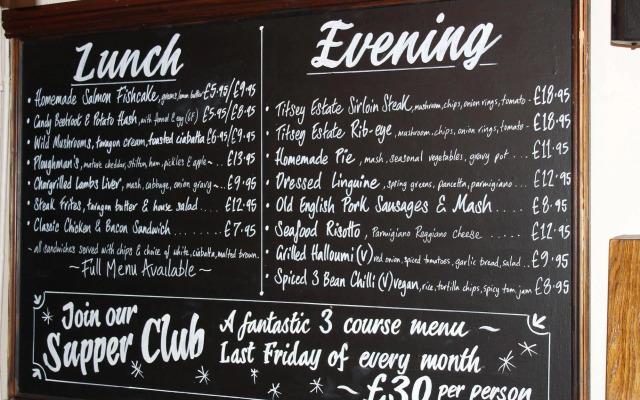 Lunch
• Homemade Salmon Fishcake, greens, lemon butter £5.95/£9.95
• Candy Beetroot & Potato Hash, with fennel & egg (GF) £5.95/£8.95
• Wild Mushrooms, taragon cream, toasted ciabatta £6.95/£9.95
• Ploughman's, mature cheddar, stilton, ham, pickles & apple ~ .. £13.95
• Chargrilled Lambs Liver, mash, cabbage, onion gravy ~ ... £9.95
• Steak frites, taragon butter & house salad .... £12.95
• Classic Chicken & Bacon Sandwich ........ £7.95
~ all sandwiches served with chips & choice of white, ciabatta, malted brown.
~ Full Menu Available ~
Evening
• Titsey Estate Sirloin Steak, mushroom, chips, onion rings, tomato - £18.95
• Titsey Estate Rib-eye, mushroom, chips, onion rings, tomato - £18.95
• Homemade Pie, mash, seasonal vegetables, gravy pot ... £11.95
• Dressed Linguine, spring greens, pancetta, parmigiano .... £12.95
• Old English Pork Sausages & Mash ..... £8.95
• Seafood Risotto, Parmigiano Reggiano Cheese ..... £12.95
• Grilled Halloumi (V) red onion, spiced tomatoes, garlic bread, salad .. £9.95
• Spiced 3 Bean Chilli (V) vegan, rice, tortilla chips, spicy tom jam £8.95
Join our
Supper Club
A fantastic 3 course menu ~
Last Friday of every month
~ £30 per person